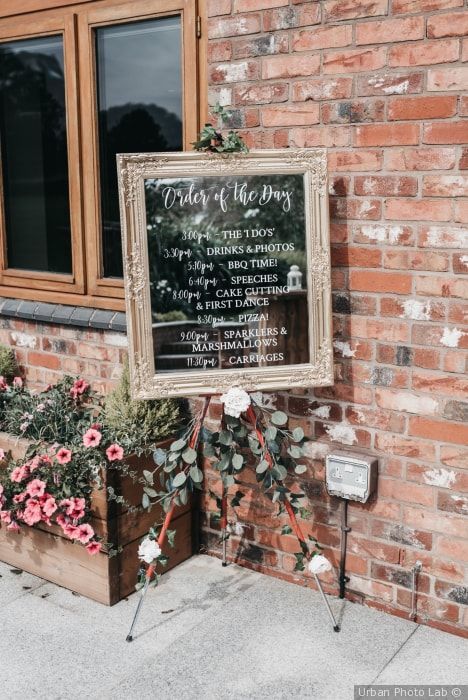 Order of the Day
3:00pm - THE 'I DO'S'
3:30pm - DRINKS & PHOTOS
5:10pm - BBQ TIME!
6:40pm - SPEECHES
8:00pm - CAKE CUTTING
& FIRST DANCE
8:30pm - PIZZA!
9:00pm - SPARKLERS &
MARSHMALLOWS
11:30pm - CARRIAGES
Urban Photo Lab ©